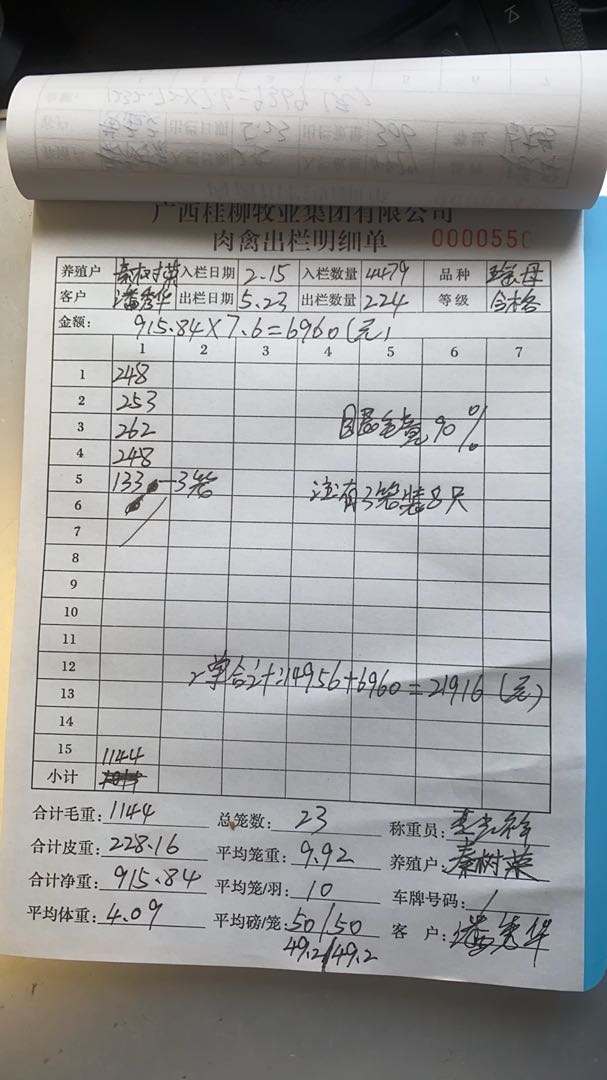 广西桂柳牧业集团有限公司
肉禽出栏明细单 0000550
养殖户 秦树荣 入栏日期 2.15 入栏数量 4479 品种 瑶母
客户 潘秀华 出栏日期 5.23 出栏数量 224 等级 合格
金额: 915.84×7.6=6960(元)
1 2 3 4 5 6 7
1 248
2 253
3 262 90%
4 248
5 133 —3笼 注:有3笼装8只
6
7
8
9
10
11
12 2单合计:14956+6960=21916(元)
13
14
15 1144
小计
合计毛重: 1144 总笼数: 23 称重员:
合计皮重: 228.16 平均笼重: 9.92 养殖户: 秦树荣
合计净重: 915.84 平均笼/羽: 10 车牌号码: /
平均体重: 4.09 平均磅/笼: 50/50 客 户: 潘秀华
49.2/49.2